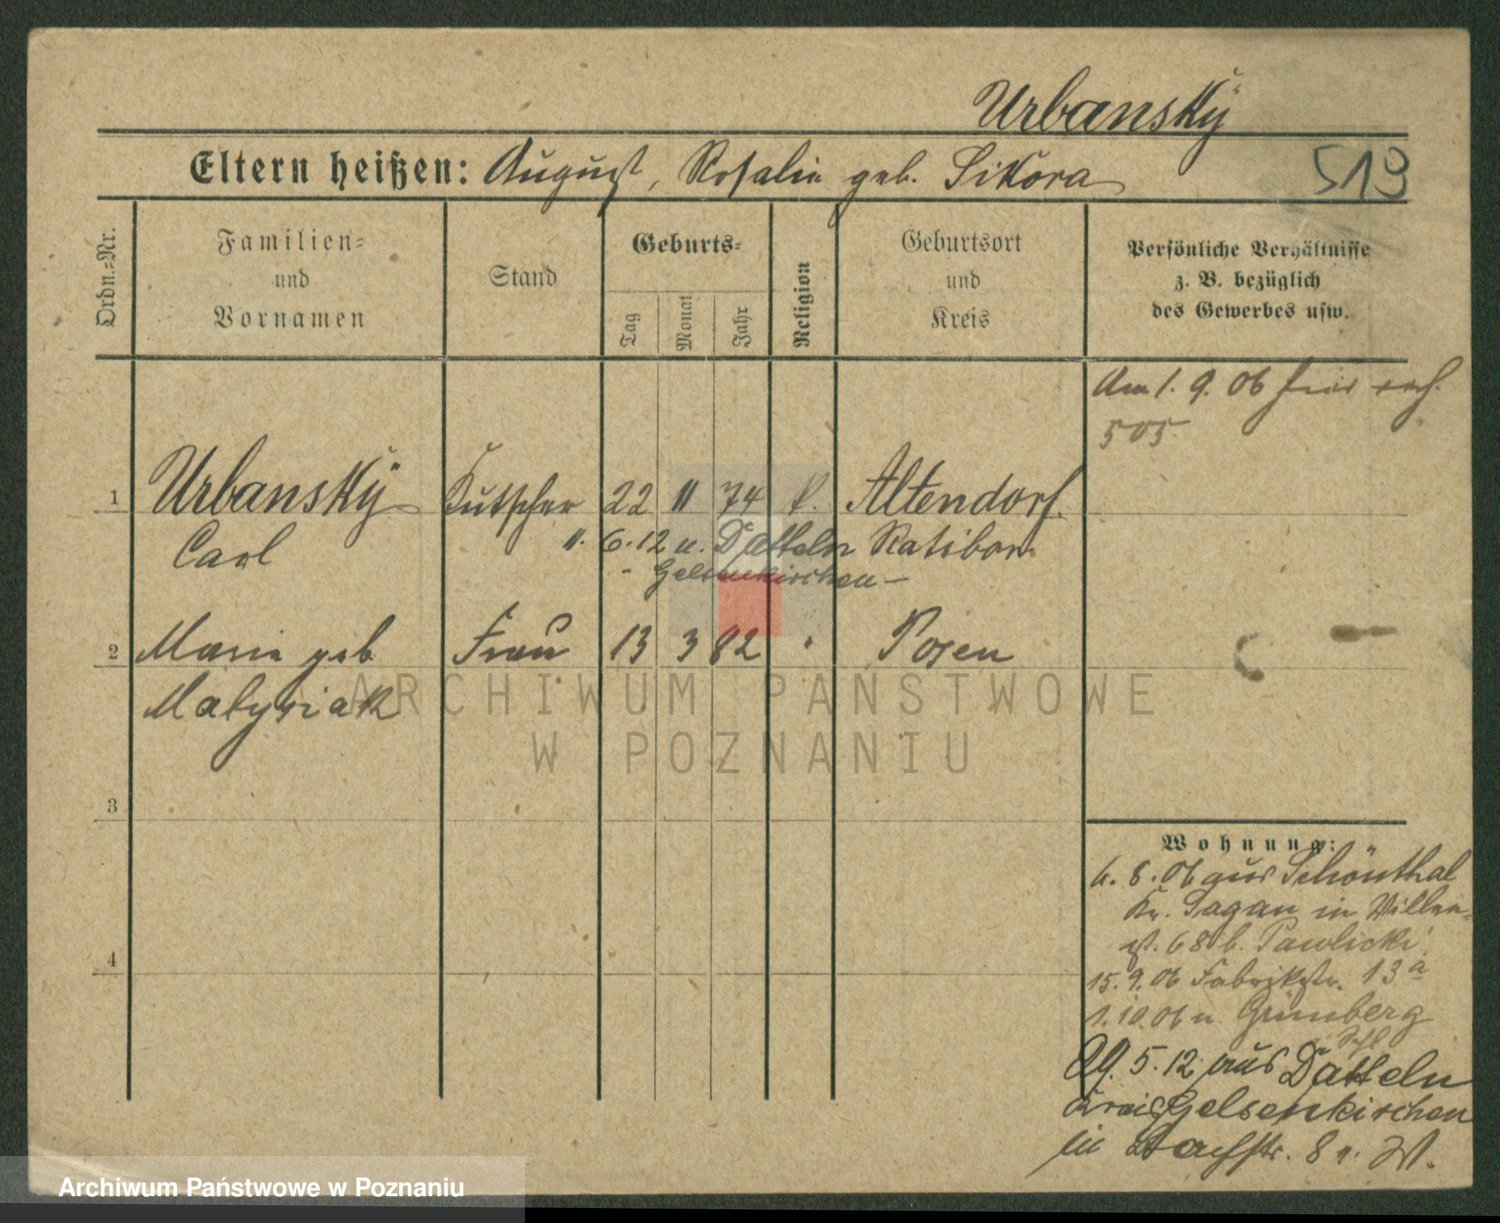 Urbansky
Eltern heißen: August, Rosalie geb. Sikora
519
Ordn.-Nr.
Familien-
und
Vornamen
Stand
Geburts-
Tag
Monat
Jahr
Religion
Geburtsort
und
Kreis
Persönliche Verhältnisse
z. B. bezüglich
des Gewerbes usw.
Am 1. 9. 06
505
1 Urbansky Kutscher 22 11 74 k. Altendorf
Carl Ratibor
6.12 n. Datteln
- Gelsenkirchen -
2 Marie geb Frau 13 3 82 " Posen
Matysiak
3
4
Wohnung:
6. 8. 06 aus Schönthal
Kr. Sagan in
68 b. Pawlicki
15. 9. 06 Fabrikstr. 13a
1. 10. 06 n. Grünberg
Schl
29. 5. 12 aus Datteln
Kreis Gelsenkirchen
in 8
ARCHIWUM PAŃSTWOWE
W POZNANIU
Archiwum Państwowe w Poznaniu